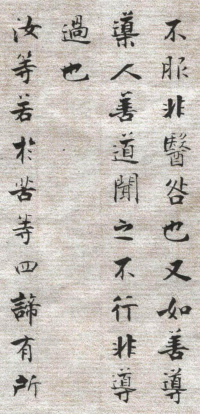 不服非醫咎也又如善導
導人善道聞之不行非導
過也
汝等若於苦等四諦有所